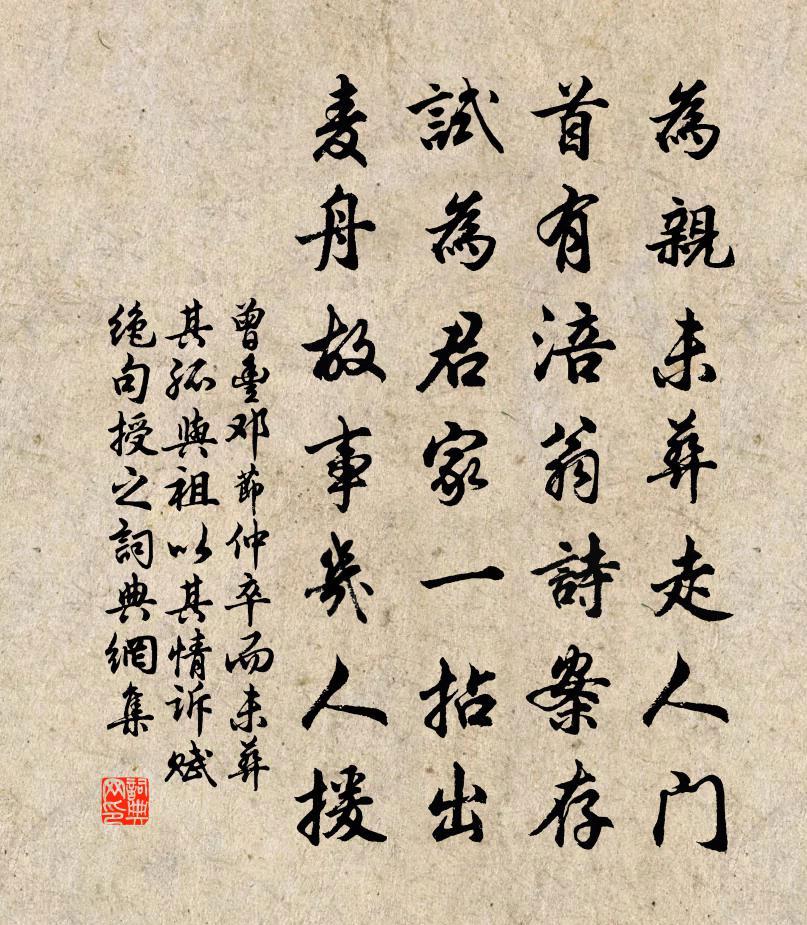 為親未葬走人門
首有涪翁詩案存
試為君家一拈出
麦舟故事幾人援
曾豊邓節仲卒而未葬
其孤與祖以其情訴賦
絶句授之詞典網集
詞典
网印